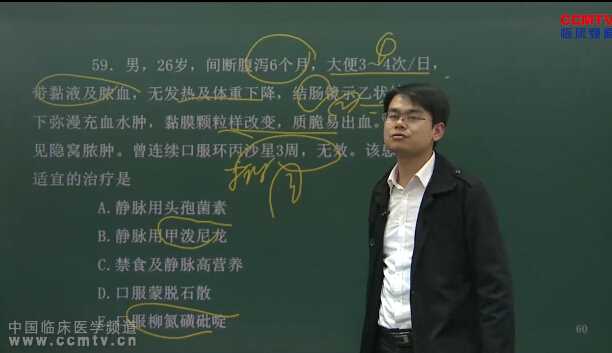 CCMTV
临床频道
59. 男，26岁，间断腹泻6个月，大便3~4次/日，
带黏液及脓血，无发热及体重下降，结肠镜示乙状
下弥漫充血水肿，黏膜颗粒样改变，质脆易出血。
见隐窝脓肿。曾连续口服环丙沙星3周，无效。该患
适宜的治疗是
A.静脉用头孢菌素
B.静脉用甲泼尼龙
C.禁食及静脉高营养
D.口服蒙脱石散
E.口服柳氮磺吡啶
中国临床医学频道
www.ccmtv.cn
60